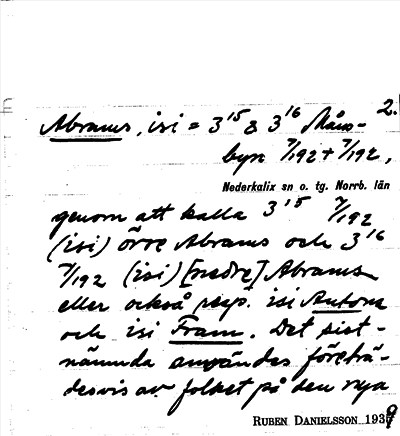 2.
Abrams, isi = 3¹⁵ & 3¹⁶ Måns-
byn 7/192 + 7/192,
Nederkalix sn o. tg. Norrb. län
genom att kalla 3¹⁵ 7/192
(isi) övre Abrams och 3¹⁶
7/192 (isi) [nedre] Abrams
eller också resp. isi Antons
och isi Fram. Det sist-
nämnda användes företrä-
desvis av folket på den nya
RUBEN DANIELSSON 1939